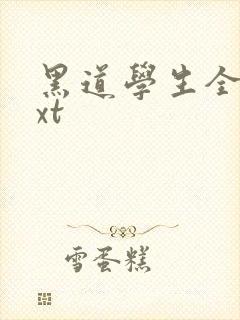 黑道學生全
xt
雪蛋糕